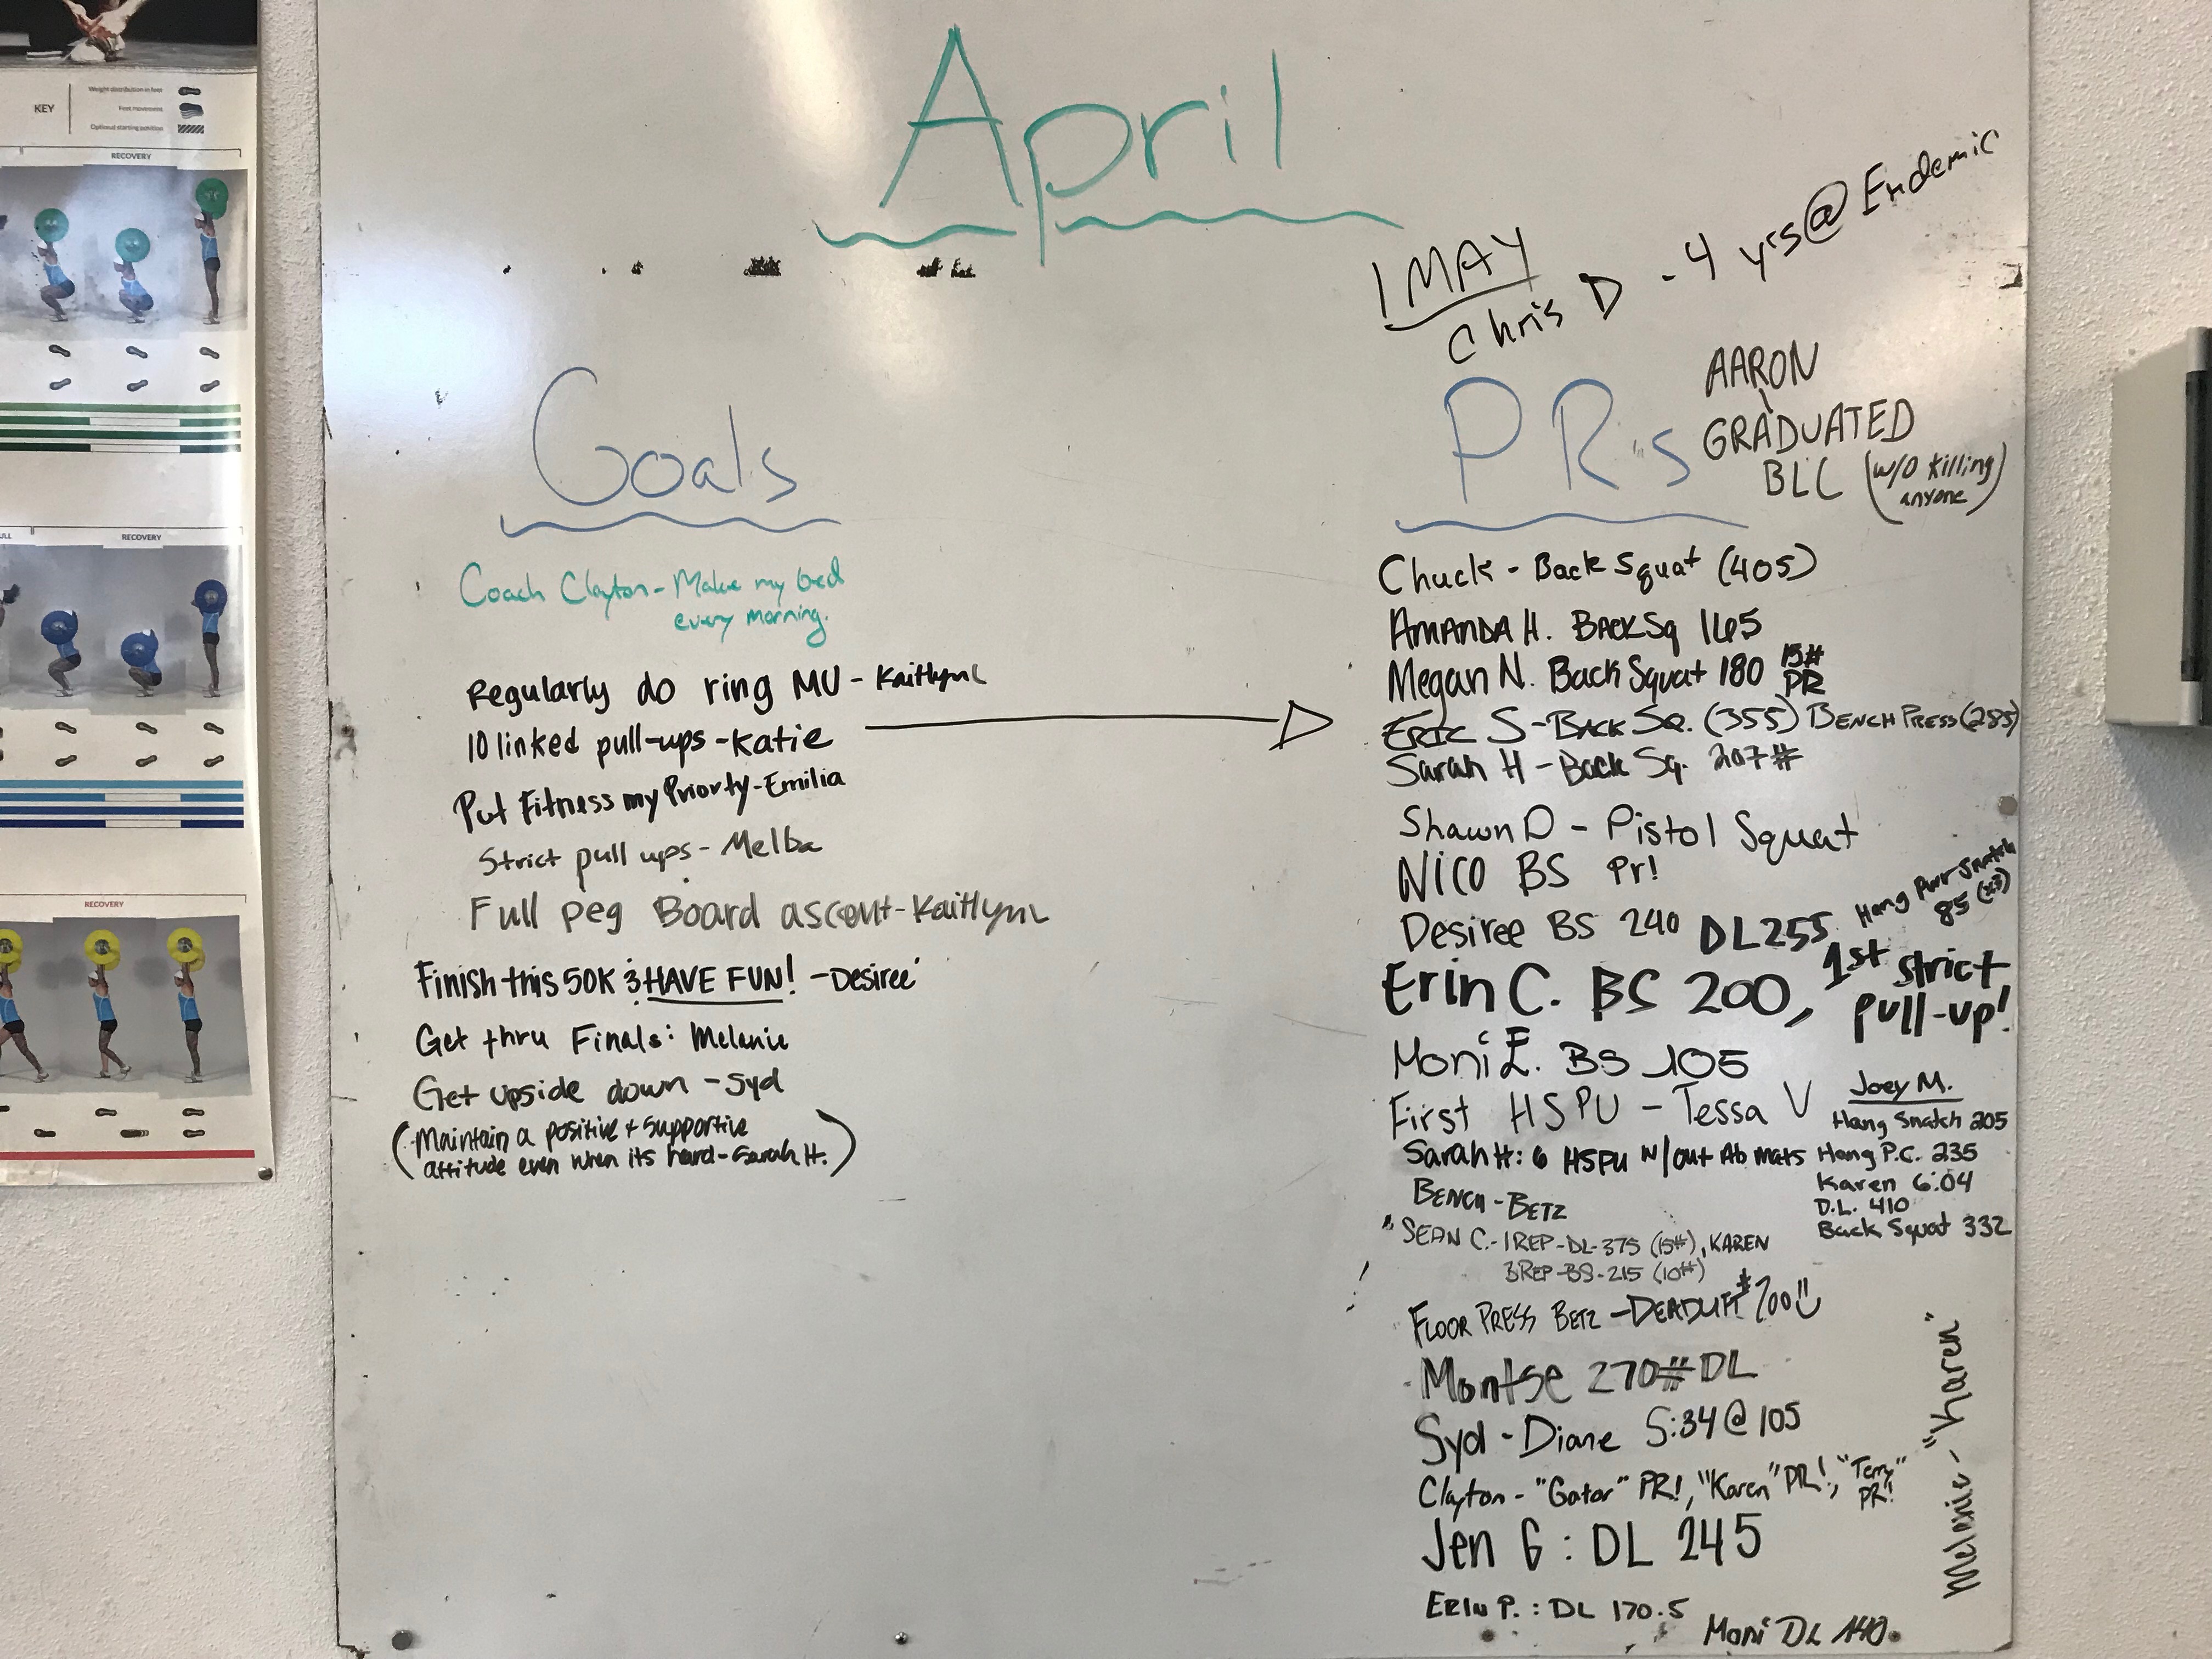 KEY
Weight distribution in feet
Foot movement
Optional starting position
RECOVERY
RECOVERY
RECOVERY
April
1 MAY
Chris D - 4 yrs @ Endemic
Goals
Coach Clayton - Make my bed
every morning.
Regularly do ring MU - Kaitlyn L
10 linked pull-ups - Katie
Put Fitness my Priorty - Emilia
Strict pull ups - Melba
Full peg Board ascent - Kaitlyn L
Finish this 50K & HAVE FUN! - Desiree
Get thru Finals: Melanie
Get upside down - Syd
(Maintain a positive + supportive
attitude even when its hard - Sarah H.)
PR's
AARON
GRADUATED
BLC (w/o killing
anyone)
Chuck - Back Squat (405)
AMANDA H. BACK SQ 165
Megan N. Back Squat 180 15# PR
ERIC S - BACK SQ. (355) BENCH PRESS (285)
Sarah H - Back Sq. 207#
Shawn D - Pistol Squat
NICO BS Pr!
Desiree BS 240 DL 255 Hang Pwr Snatch
85 (x3)
Erin C. BS 200, 1st strict
pull-up!
Moni E. BS 105
First HSPU - Tessa V
Sarah H: 6 HSPU w/out Ab mats
BENCH - BETZ
Joey M.
Hang Snatch 205
Hang P.C. 235
Karen 6:04
D.L. 410
Back Squat 332
SEAN C. - 1 REP - DL - 375 (15#), KAREN
3 REP - BS - 215 (10#)
FLOOR PRESS BETZ - DEADLIFT #200
Montse 270# DL
Syd - Diane 5:34 @ 105
Clayton - "Gator" PR!, "Karen" PR!, "Terry"
PR!
Jen G: DL 245
ERIN P. : DL 170.5
Moni DL 140
Melanie - "Karen"